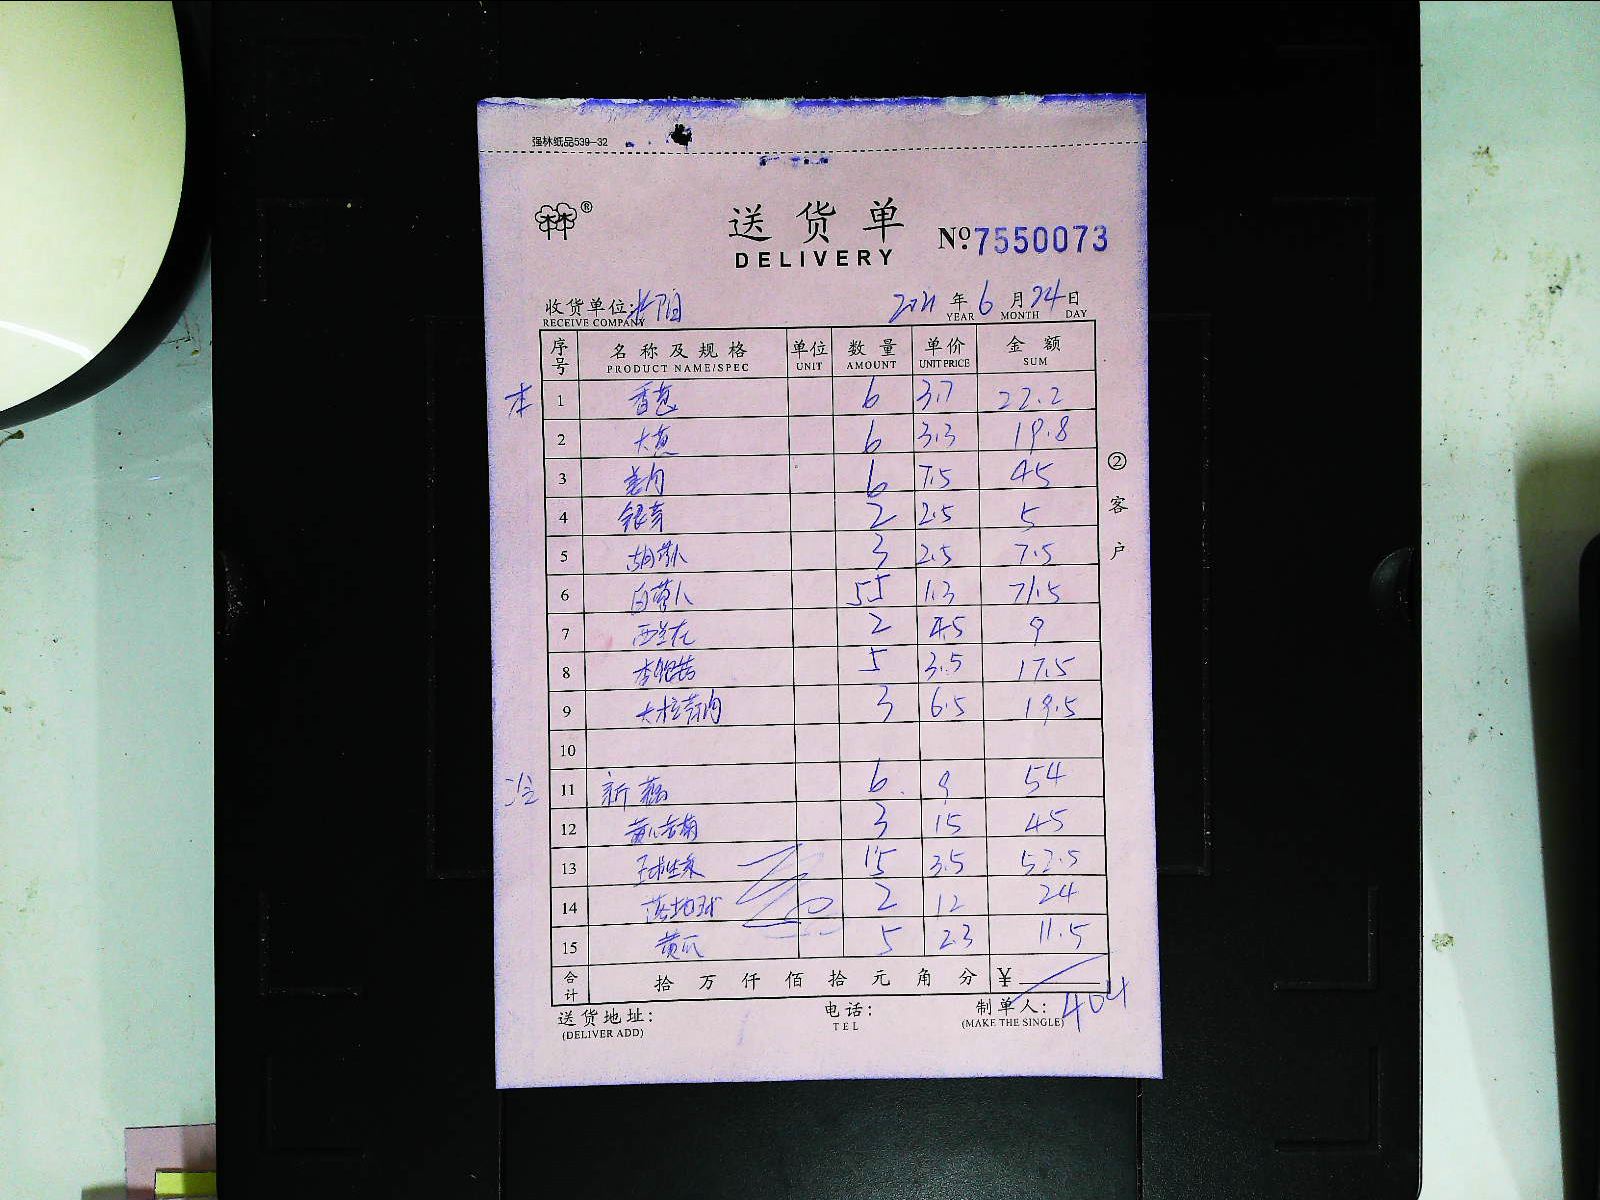 强林纸品539-32
送货单
DELIVERY
No.7550073
收货单位:
RECEIVE COMPANY
2021年6月24日
YEAR MONTH DAY
序号 名称及规格 单位 数量 单价 金额
PRODUCT NAME/SPEC UNIT AMOUNT UNIT PRICE SUM
本 1 香葱 6 3.7 22.2
2 大葱 6 3.3 19.8
3 姜肉 6 7.5 45
4 银芽 2 2.5 5
5 胡萝卜 3 2.5 7.5
6 白萝卜 55 1.3 71.5
7 西兰花 2 4.5 9
8 3.5 5 17.5
9 大粒蒜肉 3 6.5 19.5
10
11 6 9 54
12 3 15 45
13 球生菜 15 3.5 52.5
14 2 12 24
15 黄瓜 5 2.3 11.5
合计 拾万仟佰拾元角分 ¥
404
送货地址: 电话: 制单人:
(DELIVER ADD) TEL (MAKE THE SINGLE)
②客户